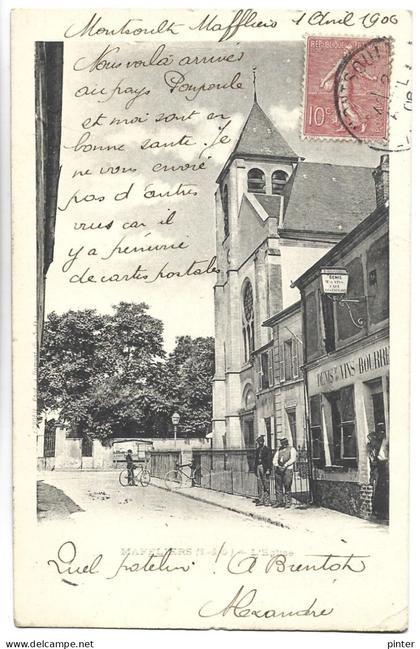 Montsoult Maffliers 1 Avril 1906
Nous voilà arrivés
au pays Poupoule
et moi sont en
bonne santé. je
ne vous envoie
pas d'autres
vues car il
y a pénurie
de cartes postales
REPUBLIQUE
10c
VINS
DENIS Md DE VINS BOURRE
MAFFLIERS (S.-&-O.) - L'Eglise
Quel patelin !
Alexandre
printer